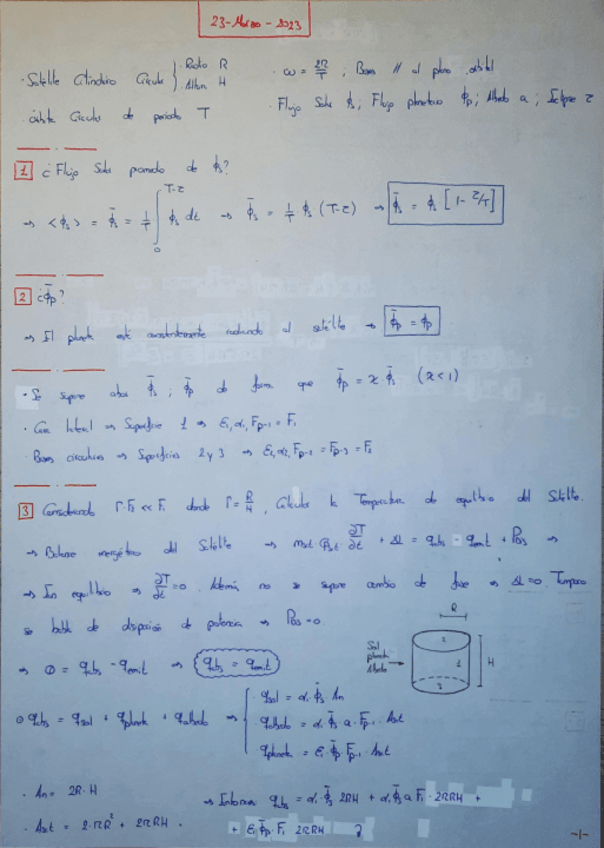 23-Marzo-2023
· Satélite Cilíndrico Circular } · Radio R · Altura H
· ω = 2π/T ; Bases // al plano orbital
· Órbita Circular de periodo T
· Flujo Solar ϕs ; Flujo planetario ϕp ; Albedo a ; Eclipse τ
1 ¿Flujo Solar promedio de ϕs?
⇒ <ϕs> = ϕ̄s = 1/T ∫₀^(T-τ) ϕs dt ⇒ ϕ̄s = 1/T ϕs (T-τ) ⇒ ϕ̄s = ϕs [1 - τ/T]
2 ¿ϕ̄p?
⇒ El planeta está constantemente radiando al satélite ⇒ ϕ̄p = ϕp
· Se supone ahora ϕ̄s ; ϕ̄p de forma que ϕ̄p = x · ϕ̄s (x<1)
· Cara lateral ⇒ Superficie 1 ⇒ ε₁, α₁, Fp-1 = F₁
· Bases circulares ⇒ Superficies 2 y 3 ⇒ ε₂, α₂, Fp-2 = Fp-3 = F₂
3 Considerando Γ·F₂ << F₁ donde Γ = R/H, Calcular la Temperatura de equilibrio del Satélite.
⇒ Balance energético del Satélite ⇒ msat · Cpsat ∂T/∂t + ΔL = qabs - qemit + Pdis ⇒
⇒ En equilibrio ⇒ ∂T/∂t = 0. Además no se supone cambio de fase ⇒ ΔL = 0. Tampoco
se habla de disipación de potencia ⇒ Pdis = 0.
⇒ 0 = qabs - qemit ⇒ qabs = qemit
R
Sol
planeta
Albedo
2
1
H
3
⊙ qabs = qsol + qplaneta + qalbedo ⇒
· qsol = α₁ ϕ̄s An
· qalbedo = α₁ ϕ̄s a · Fp-1 · Asat
· qplaneta = ε₁ ϕ̄p Fp-1 · Asat
· An = 2R·H
⇒ Entonces qabs = α₁ · ϕ̄s 2RH + α₁ ϕ̄s a F₁ · 2πRH +
· Asat = 2·πR² + 2πRH ·
+ ε₁ ϕ̄p · F₁ 2πRH
-1-